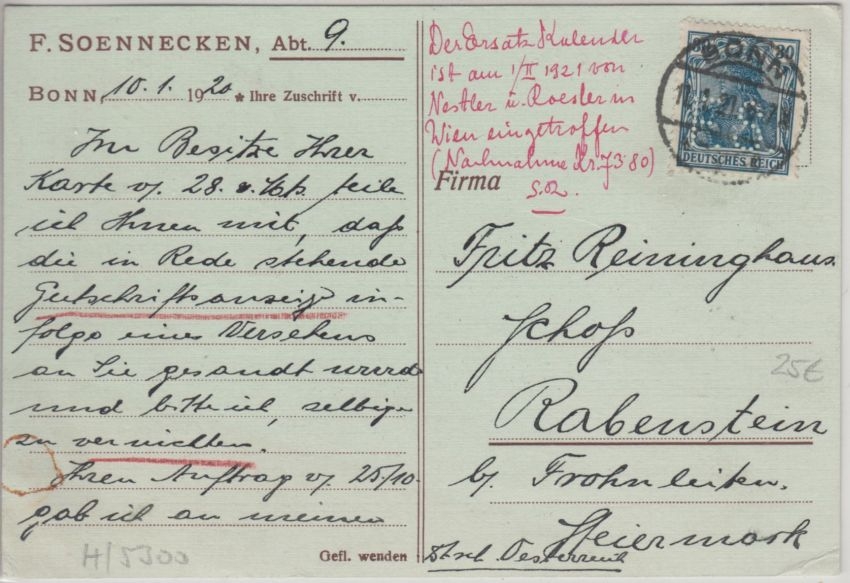 F. SOENNECKEN, Abt. 9.
BONN, 10.1. 1920 * Ihre Zuschrift v.
Im Besitze Ihrer
Karte v. 28. v. Mts. teile
ich Ihnen mit, daß
die in Rede stehende
Gutschriftsanzeige in-
folge eines Versehens
an Sie gesandt wurde
und bitte ich, selbige
zu vernichten.
Ihren Auftrag v. 25/10.
gab ich an meinen
H/5300
Gefl. wenden
Der Ersatz Kalender
ist am 1/II 1921 von
Nestler u. Roesler in
Wien eingetroffen
(Nachnahme Kr 73.80)
30
BONN
DEUTSCHES REICH
Firma
Fritz Reininghaus.
Schoß
25€
Rabenstein
b/ Frohnleiten.
Steiermark
Dtsch. Oesterreich